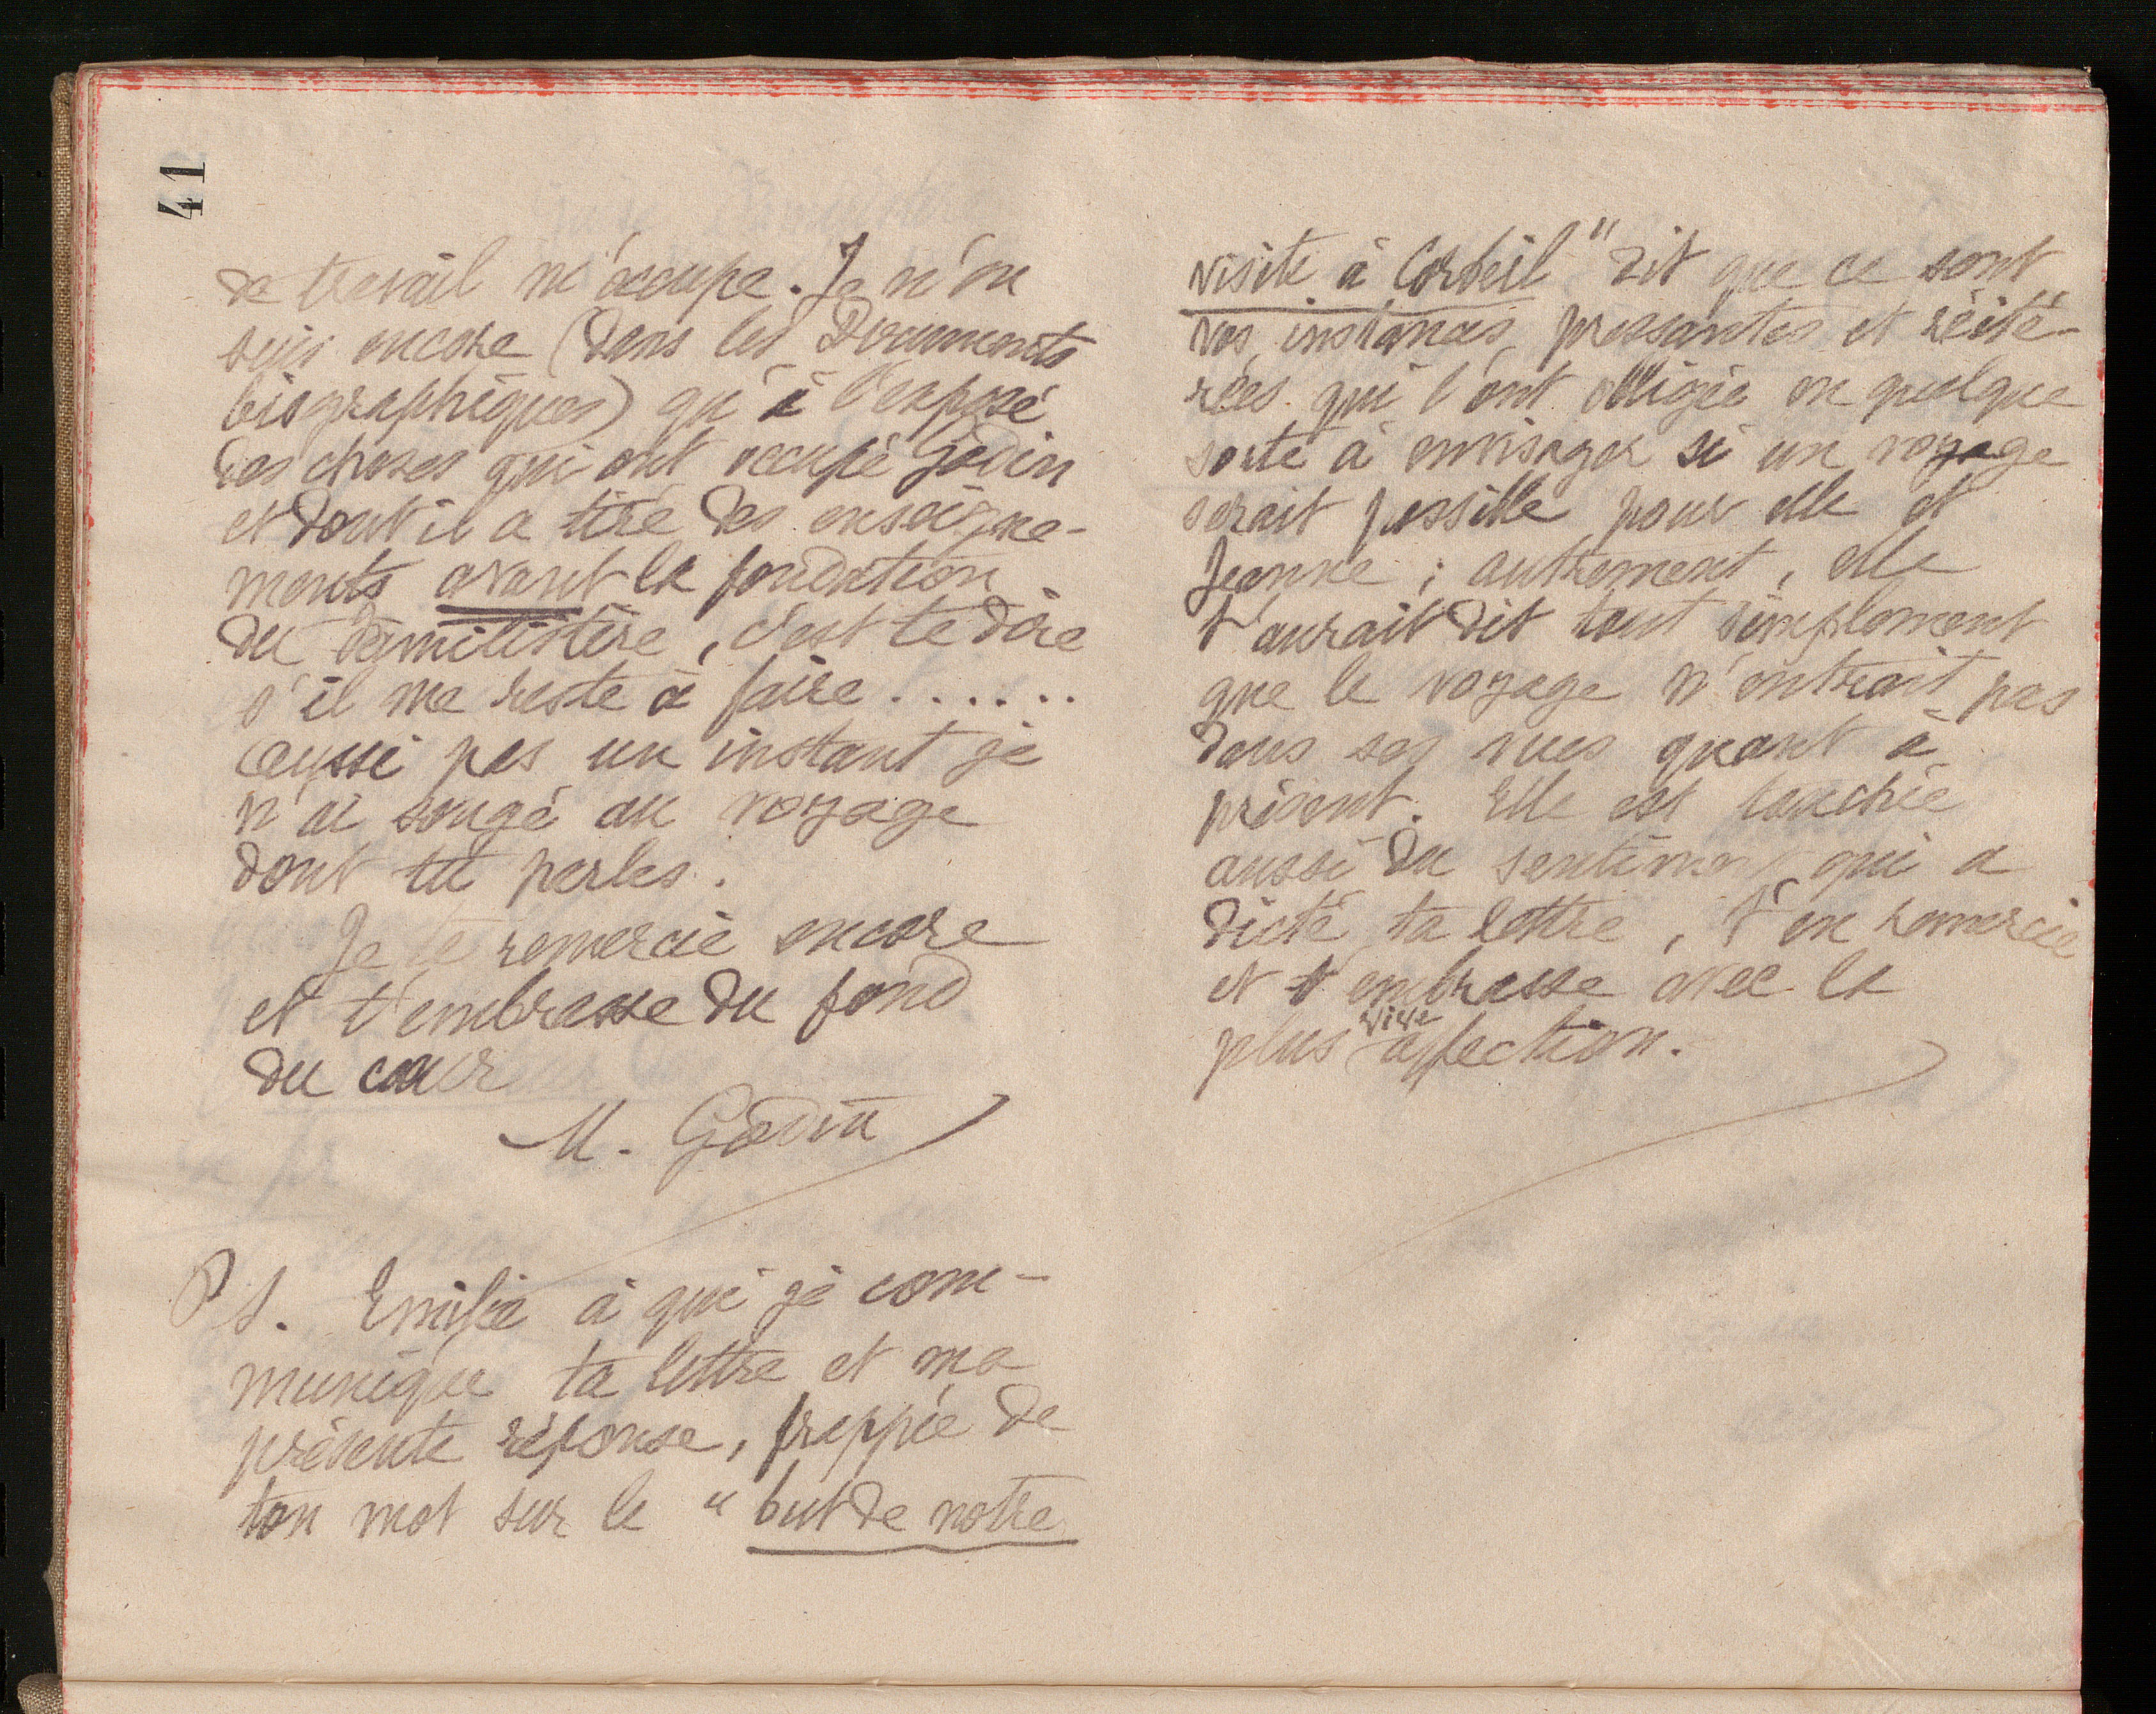 41
de travail m'occupe. Je n'en
suis encore (dans les Documents
biographiques) qu'à l'exposé
des choses qui ont occupé Godin
et dont il a tiré des enseigne-
ments avant la fondation
du Familistère, c'est te dire
s'il me reste à faire . . . . . .
aussi pas un instant je
n'ai songé au voyage
dont tu parles.
Je te remercie encore
et t'embrasse du fond
du cœur
M. Godin
PS. Emilie à qui je com-
munique ta lettre et ma
présente réponse, frappée de
ton mot sur le "but de notre
visite à Corbeil" dit que ce sont
vos instances pressantes et réité-
rées qui l'ont obligée en quelque
sorte à envisager si un voyage
serait possible pour elle et
Jeanne ; autrement, elle
t'aurait dit tout simplement
que le voyage n'entrait pas
dans ses vues quant à
présent. Elle est touchée
aussi du sentiment qui a
dicté ta lettre, t'en remercie
et t'embrasse avec la
plus vive affection.